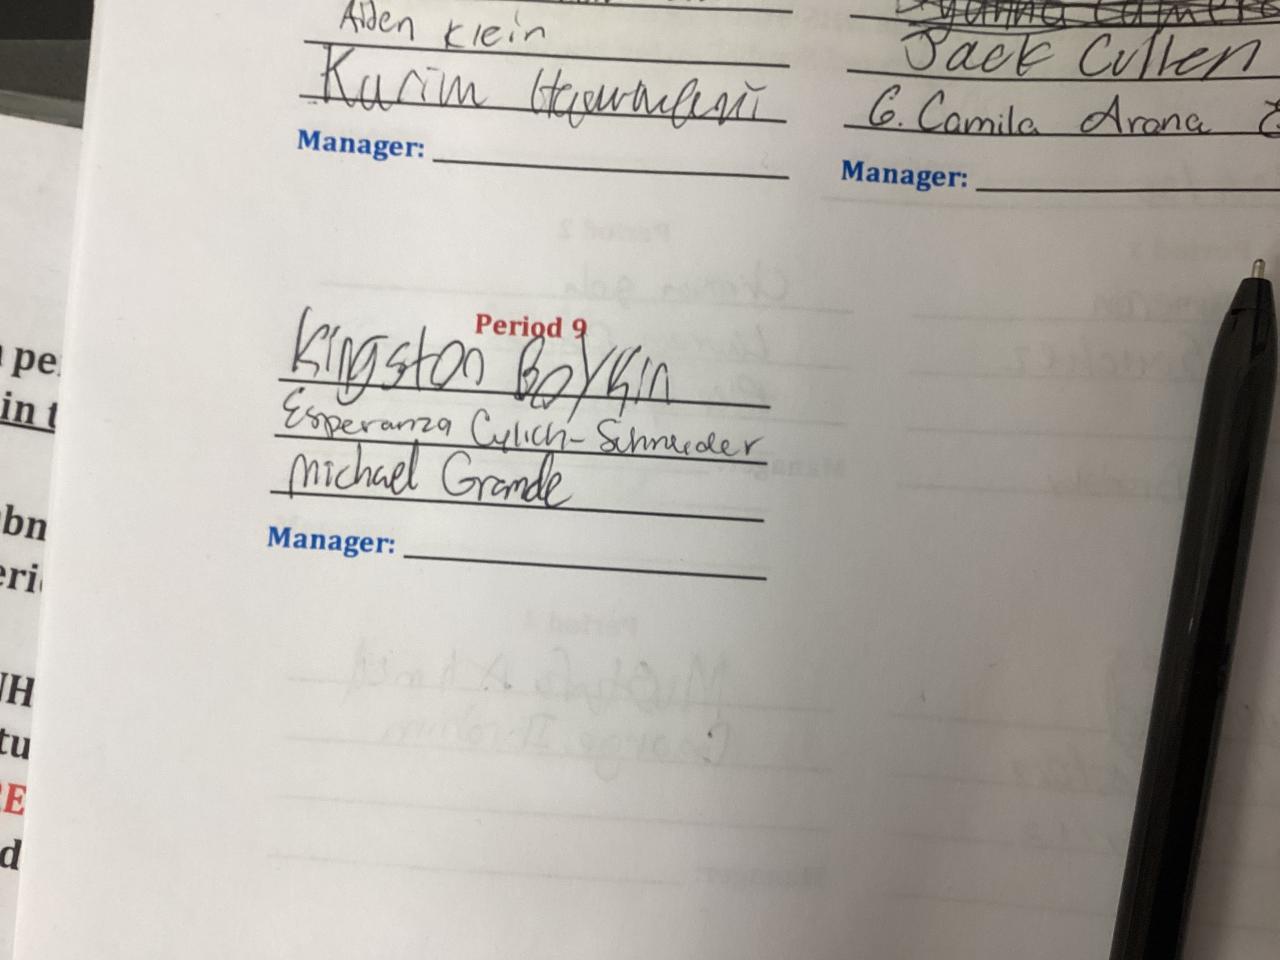 Aiden Klein
Karim
Manager:
Jack Cullen
G. Camila Arana
Manager:
Period 9
Kingston Boykin
Esperanza Cylich-Schneider
Michael Grande
Manager:
pe
in t
bn
eri
tu
E
d